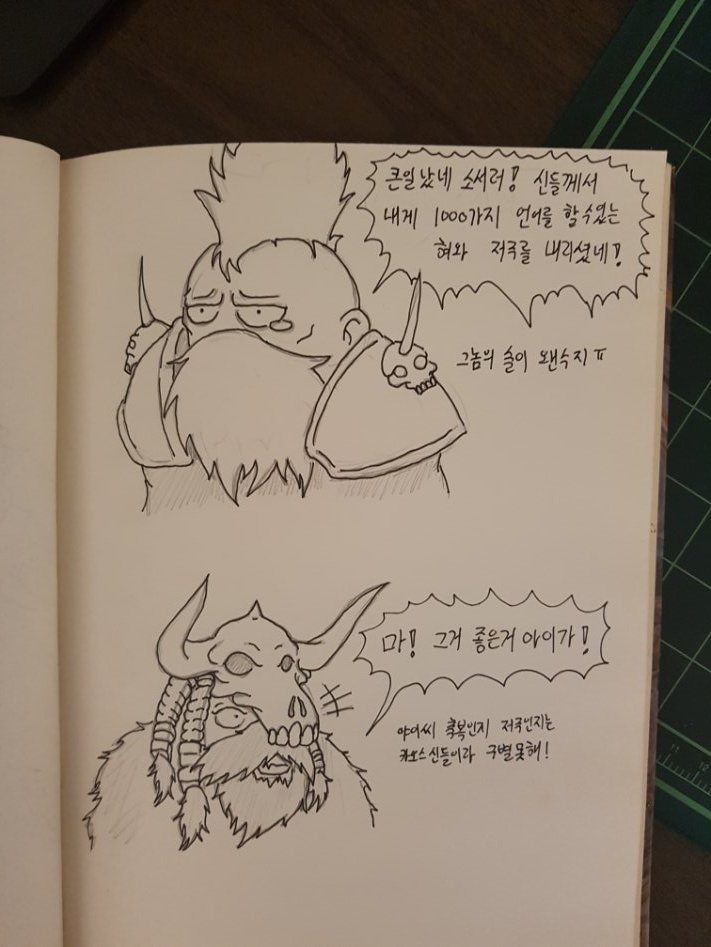 큰일났네 소서러! 신들께서
내게 1000가지 언어를 할수있는
혀와 저주를 내리셨네!
그놈의 술이 왠수지 ㅠ
마! 그거 좋은거 아이가!
야이씨 축복인지 저주인지는
카오스신들이라 구별못해!